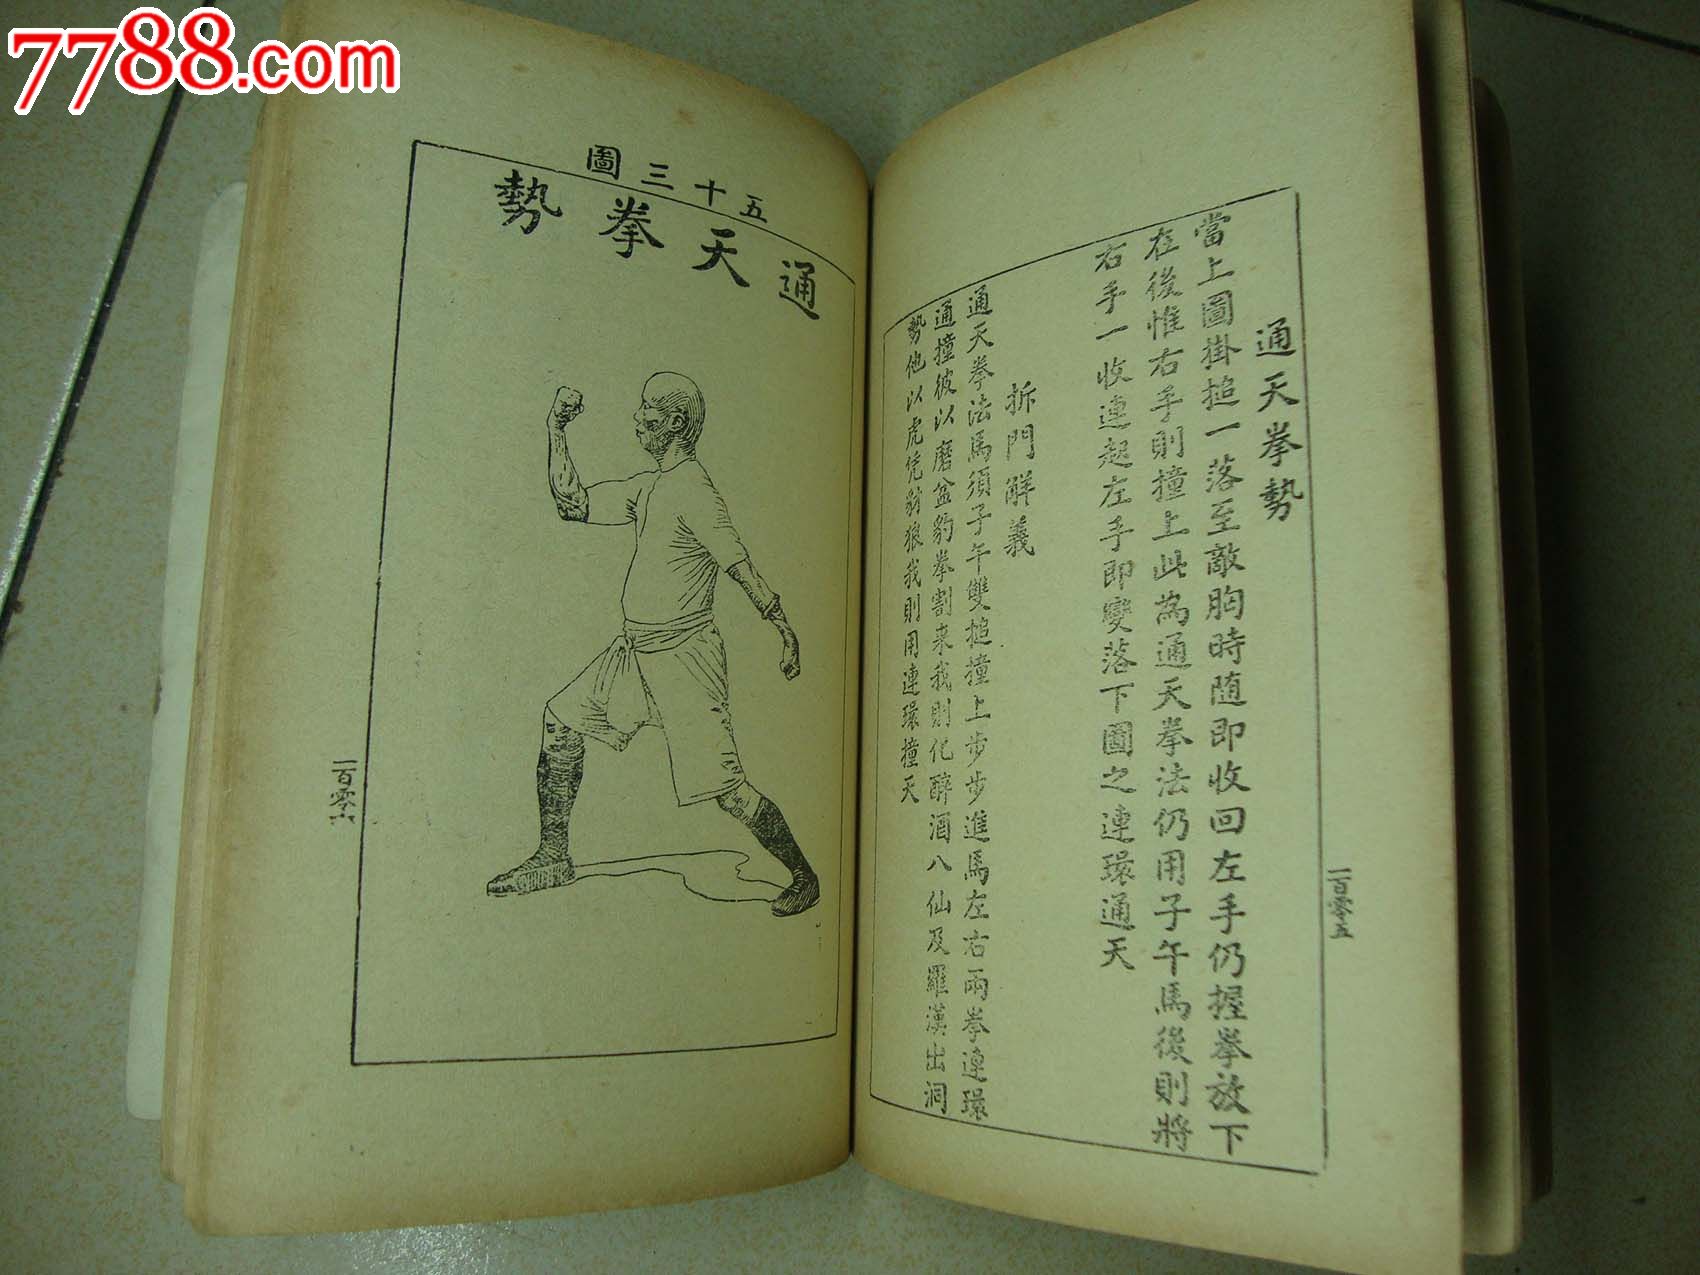 7788.com
通天拳勢
當上圖掛搥一落至敵胸時随即收回左手仍握拳放下
在後惟右手則撞上此為通天拳法仍用子午馬後則將
右手一收連起左手即變落下圖之連環通天
拆門觧義
通天拳法馬須子午雙搥撞上步步進馬左右兩拳連環
通撞彼以磨盆豹拳割来我則化醉酒八仙及羅漢出洞
勢他以虎
狼我則用連環撞天
一百零五
五十三圖
通天拳勢
一百零六